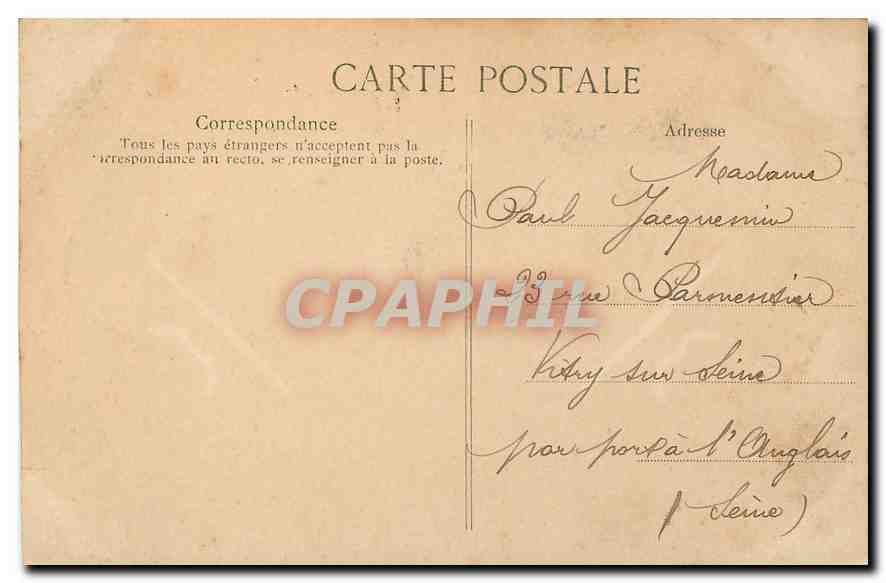 CARTE POSTALE
Correspondance
Tous les pays étrangers n'acceptent pas la
correspondance au recto, se renseigner à la poste.
Adresse
Madame
Paul Jacquemin
23 rue Parmentier
Vitry sur Seine
par port à l'Anglais
(Seine)
CPAPHIL